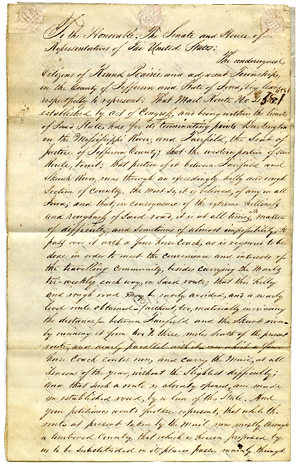 To the Honorable, The Senate and House of
Representatives of the United States;
The undersigned
Citizens of Round Prairie and adjacent Townships,
in the County of Jefferson and State of Iowa, beg leave
respectfully to represent; That Mail Route No
established by act of Congress, and being within the limits
of said State, has for its terminating points Burlington
on the Mississippi River, and Fairfield, the Seat of
Justice of Jefferson County; that the
Route, that portion of it between Fairfield and
Skunk River, runs through an exceedingly hilly and rough
Section of Country, the most so, it is believed, of any in all
Iowa; and that in consequence of the extreme
and roughness of said road, it is at all times a matter
of difficulty, and sometimes of almost impossibility to
pass over it with a four horse Coach, as is required to be
done in order to meet the convenience and interests of
the travelling Community, besides carrying the Mail
tri-weekly each way, on said route; that this hilly
and rough road may be easily avoided, and a nearly
level route obtained, without, too, materially increasing
the distance between Fairfield and Skunk River
by running it from two to three miles South of the present
route, and nearly parallel with it, on which a four
horse Coach could run, and carry the Mail, at all
Seasons of the year, without the Slightest difficulty;
and that such a route is already opened, and made
an established road, by a law of the State. And
your petitioners would further represent, that while the
route at present taken by the Mail runs mostly through
a timbered Country, that which is herein proposed by
us to be Substituted in its place, passes mainly through